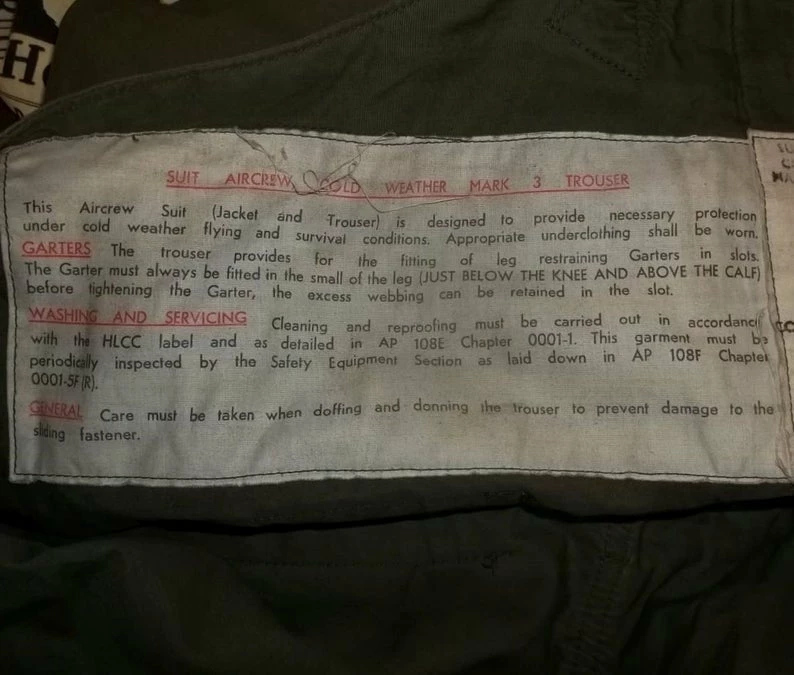 H
SUIT AIRCREW COLD WEATHER MARK 3 TROUSER
This Aircrew Suit (Jacket and Trouser) is designed to provide necessary protection
under cold weather flying and survival conditions. Appropriate underclothing shall be worn.
GARTERS The trouser provides for the fitting of leg restraining Garters in slots.
The Garter must always be fitted in the small of the leg (JUST BELOW THE KNEE AND ABOVE THE CALF)
before tightening the Garter, the excess webbing can be retained in the slot.
WASHING AND SERVICING Cleaning and reproofing must be carried out in accordance
with the HLCC label and as detailed in AP 108E Chapter 0001-1. This garment must be
periodically inspected by the Safety Equipment Section as laid down in AP 108F Chapter
0001-5F(R).
GENERAL Care must be taken when doffing and donning the trouser to prevent damage to the
sliding fastener.